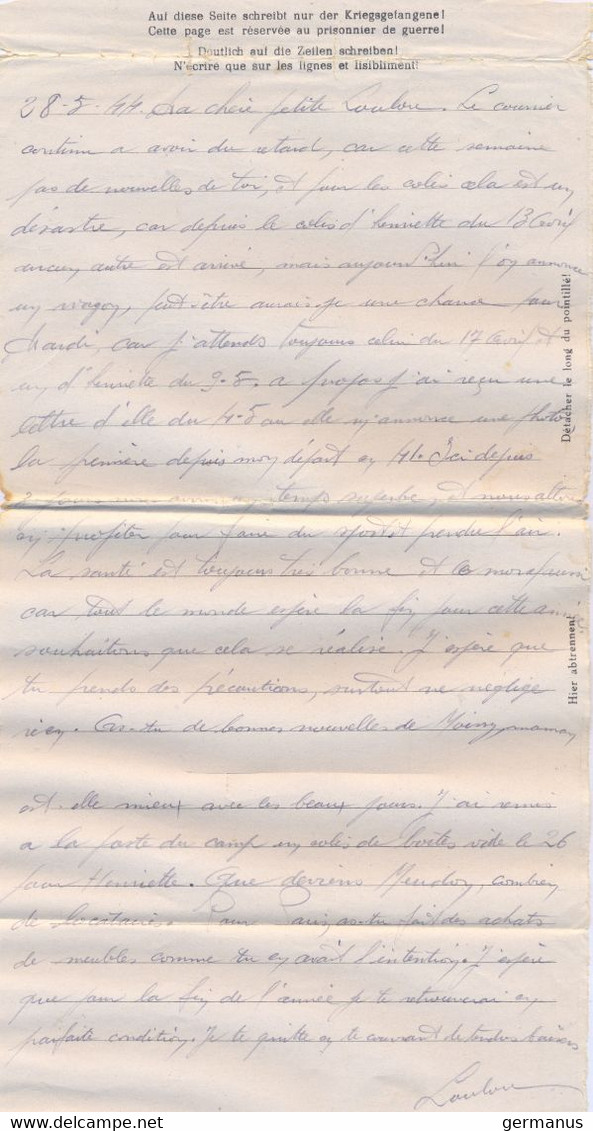 Auf diese Seite schreibt nur der Kriegsgefangene!
Cette page est réservée au prisonnier de guerre!
Deutlich auf die Zeilen schreiben!
N'écrire que sur les lignes et lisiblment!
28-5-44. Ma chère petite Loulou. Le courrier
continu a avoir du retard, car cette semaine
pas de nouvelles de toi, et pour les colis cela est un
désastre, car depuis le colis d'henriette du 13 Avril
aucun autre est arrivé, mais aujourd'hui l'on annonce
un wagon, peut-être aurais-je une chance pour
Mardi, car j'attends toujours celui du 17 Avril et
un d'henriette du 9-5. a propos j'ai reçu une
lettre d'elle du 4-5 ou elle m'annonce une photo
la première depuis mon départ en 41. Ici depuis
jours nous avons un temps superbe, et nous allons
en profiter pour faire du sport et prendre l'air.
La santé est toujours très bonne et le moral aussi
car tout le monde espère la fin pour cette année
souhaitons que cela se réalise. J'espère que
tu prends des précautions, surtout ne néglige
rien. As-tu de bonnes nouvelles de maman
est-elle mieux avec les beaux jours. J'ai remis
a la poste du camp un colis de boites vide le 26
pour Henriette. Que deviens Meudon, combien
de locataires. Pour as-tu fait des achats
de meubles comme tu en avait l'intention. J'espère
que pour la fin de l'année je te retrouverai en
parfaite condition. Je te quitte en te couvrant de tendres baisers
Loulou
Détacher le long du pointillé!
Hier abtrennen!
germanus